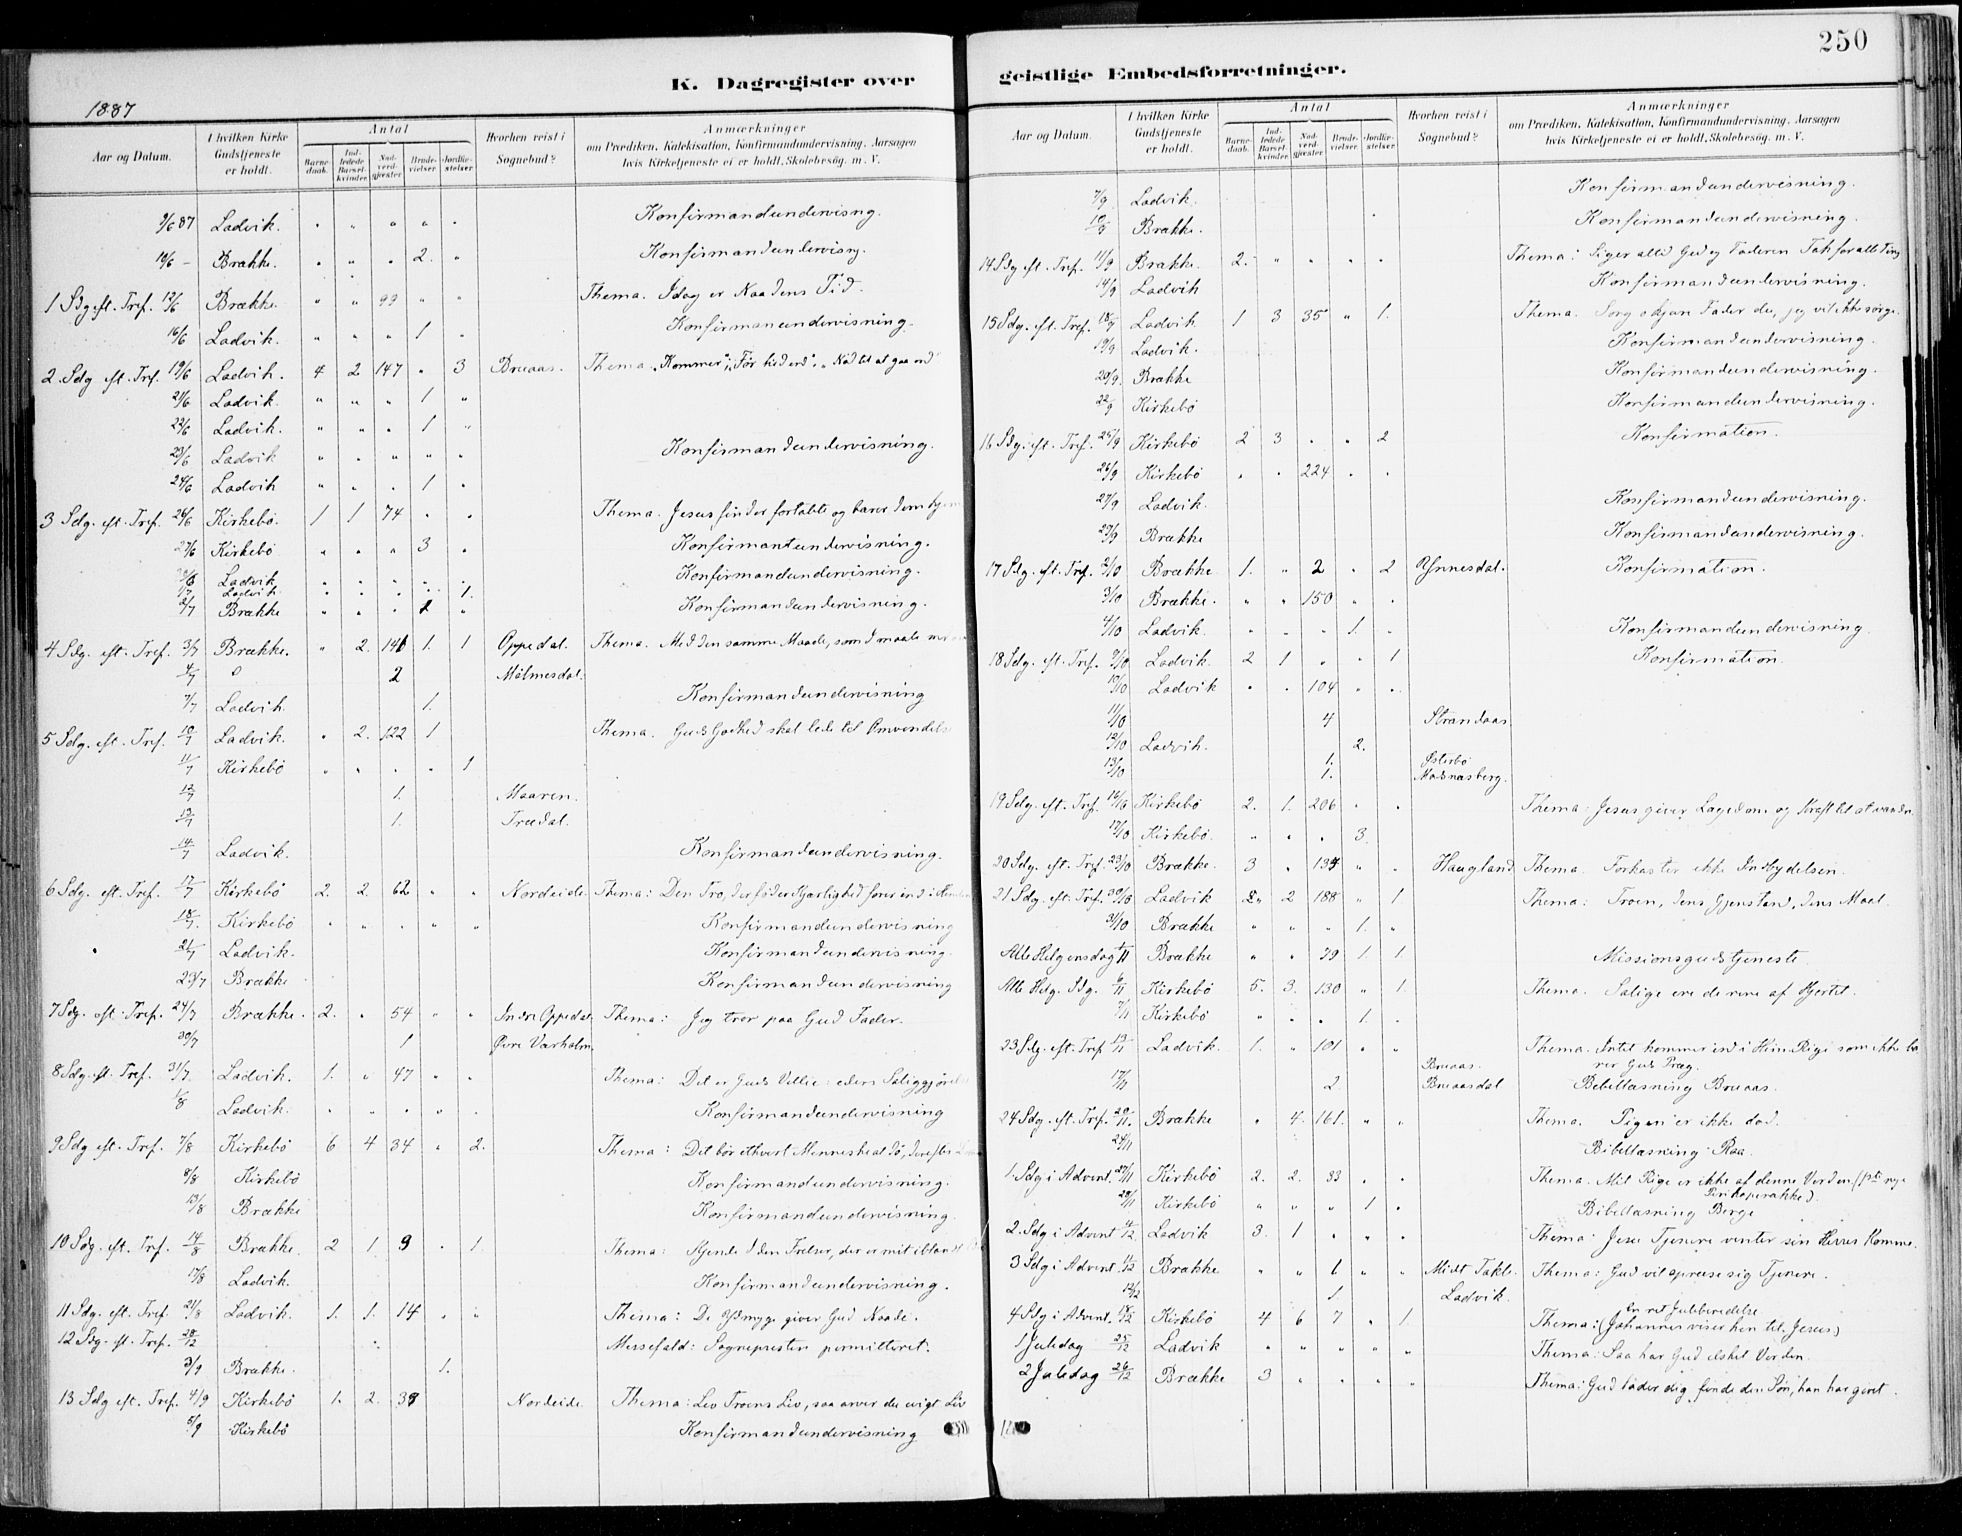 250
K. Dagregister over geistlige Embedsforretninger.
1887
Aar og Datum. I hvilken Kirke Gudstjeneste er holdt. Antal Barnedaab. Indledede Barselkvinder. Nadverdgjæster Brudevielser. Jordfæstelser Hvorhen reist i Sognebud? Anmærkninger om Prædiken, Katekisation, Konfirmandundervisning, Aarsagen hvis Kirketjeneste ei er holdt, Skolebesög. m. V.
9/6 87 Ladvik. " " " " " Konfirmandundervisng.
10/6 - Brække. " " " 2. " Konfirmandundervisng.
1 Sdg. eft. Tref. 12/6 Brække " " 99 " " Thema. Idag er Naadens Tid.
16/6 Ladvik. " " " 1 " Konfirmanundervisning.
2. Sdg eft. Tref. 19/6 Ladvik. 4 2 147 " 3 Bruaas. Thema
21/6 Ladvik. " " " 1 "
22/6 Ladvik. " " " 1 "
23/6 Ladvik " " " " " Konfirmandundervisning.
24/6 Ladvik " " " 1 "
3 Sdg. eft. Tref. 26/6 Kirkebö. 1 1 74 " " Thema. Jesus finder fortabte og bærer dem hjem
27/6 Kirkebö " " " 3 " Konfirmantundervisning.
Ladvik " " " " " Konfirmandundervisning.
1/7 Ladvik " " " " 1.
2/7 Brække " " " 1 " Konfirmandundervisning.
4 Sdg. eft. Tref. 3/7 Brække. " 2. 141 1. 1 Oppedal. Thema. Med den samme Maade, som I maale
4/7 2 Malmesdal.
7/7 Ladvik. 1. Konfirmandundervisning
5 Sdg. eft. Tref. 10/7 Ladvik. " 2. 122 1 Thema. Guds Godhed skal lede til Omvendels
11/7 Kirkebö " " " " 1
12/7 1. Maaren.
13/7 1. Trædal.
14/7 Ladvik. Konfirmandundervisning.
6 Sdg. eft. Tref. 17/7 Kirkebö 2. 2. 62 " " Nordeide Thema: Den Tro, der föder Kjærlighed förer ind i
18/7. Kirkebö " " " " " Konfirmandundervisning
21/7 Ladvik. Konfirmandundervisning.
23/7 Brække Konfirmandundervisning
7 Sdg. eft. Tref. 24/7 Brække. 2. " 54 " " Indre Oppedal Thema: Jeg tror paa Gud Fader.
30/7 1 Øvre Værholm,
8 Sdg. eft. Tref. 31/7. Ladvik. 1. " 47 " " Thema: Det er Guds Villie: eders Saliggjörel
1/8 Ladvik. " " " " " Konfirmandundervisning
9 Sdg eft. Tref. 7/8 Kirkebö 6 4 34 " 2. Thema: Det bör ethvert Menneske at dö, derefter
8/8 Kirkebö Konfirmandundervisning.
13/8 Brække Konfirmandundervisning.
10 Sdg. eft. Tref. 14/8 Brække. 2 1. 9 " 1. Thema: Kjende I den Frelser, der er mit iblandt
17/8 Ladvik. Konfirmandundervisning.
11 Sdg. eft. Tref. 21/8 Ladvik. 1. 1. 14 " " Thema: De Ydmyge giver Gud Naade.
12 Sdg. eft. Tref. 28/12 Messefald: Sognepresten permitteret.
3/9 Brække. 1.
13 Sdg eft. Tref. 4/9 Kirkebö 1. 2. 38 Nordeide. Thema: Lev Troens Liv, saa arver du evigt Liv
5/9 Kirkebö Konfirmandundervisning
Aar og Datum. I hvilken Kirke Gudstjeneste er holdt. Antal Barnedaab. Indledede Barselkvinder. Nadverdgjæster Brudevielser. Jordfæstelser Hvorhen reist i Sognebud? Anmærkninger om Prædiken, Katekisation, Konfirmandundervisning, Aarsagen hvis Kirketjeneste ei er holdt, Skolebesög. m. V.
7/9 Ladvik. Konfirmandundervisning.
10/9 Brække. Konfirmandundervisning.
14 Sdg. eft. Tref. 11/9 Brække 2. " " " " Thema: Siger altid Gud og Faderen Tak for alle Ting
14/9 Ladvik Konfirmandundervisning.
15 Sdg. eft. Tref. 18/9 Ladvik 1 3 35 " 1. Thema. Sorg odjær Fader du, jeg vil ikke sörge.
19/9 Ladvik. Konfirmandundervisning.
20/9. Brække Konfirmandundervisning.
22/9 Kirkebö Konfirmandundervisning.
16 Sdg. eft. Tref. 25/9 Kirkebö 2 3 " " 2 Konfirmation.
26/9 Kirkebö " " 224 " "
27/9 Ladvik. Konfirmandundervisning.
29/9 Brække Konfirmandundervisning.
17 Sdg. eft. Tref. 2/10 Brække 1. " 2 " 2 Ynnesdal. Konfirmation.
3/10 Brække. " " 150 " "
4/10 Ladvik. " " " 1. " Konfirmandundervisning
18 Sdg. eft. Tref 9/10 Ladvik. 2 1 " " 1 Konfirmation.
10/10 Ladvik " " 104 " "
11/10 4 Strandaas.
12/10 Ladvik. 2.
13/10 1. Österbö
1. Masnæsberg.
19 Sdg. eft. Tref 16/10 Kirkebö 2. 1. 206 " " Thema: Jesus giver Lægedom og Kraft til at vandr
17/10 Kirkebö. " " " 3
20 Sdg. eft. Tref. 23/10 Brække. 3 " 134 " " Haugland Thema. Forkaster ikke Indbydelsen.
21 Sdg. eft. Tref. 30/10 Ladvik " 2 188 " 1. Thema: Troen, dens Gjenstand, dens Maal.
31/10 Brække " " " 1. "
Alle Helgensdag 1/11 Brække " " 29 1 1. Missionsgudstjeneste.
Alle Helg. Sdg. 6/11 Kirkebö 5. 3. 130 " 1. Thema. Salige ere de rene af Hjertet.
7/11 Kirkebö " " " 1.
23 Sdg. eft. Tref 13/11 Ladvik. 1. " 101 " " Thema. Intet kommer ind i Him. Rige som ikke bæ
rer Guds Præg.
17/11 2 Bruaas. Bruaasdal Bibellæsning Bruaas.
24 Sdg. eft. Tref. 20/11. Brække " 4. 161. " " Thema. Pigen er ikke död.
24/11 Bibellæsning Raa.
1 Sdg i Advent. 27/11 Kirkebö 2. 2. 33 " " Thema. Mit Rige er ikke af denne Verden (1ste nye
Perikoperække).
28/11 Kirkebö " " " 1 " Bibellæsning Berge
2. Sdg i Advent 4/12 Ladvik 3. 1 " " " Thema: Jesu Tjenere venter sin Herres Komme.
3 Sdg i Advent. 11/12 Brække " " 1 " " Midt Takle Thema: Gud vil aprese sig Tjenere.
12/12 1 Ladvik.
4 Sdg i Advent. 18/12 Kirkebö 4 6 7 " 1. Thema: En ret Juleberedelse
(Johannes viser hen til Jesus)
1 Juledag 25/12 Ladvik " " " " " Thema: Saa har Gud elsket Verden.
2 Juledag 26/12 Brække 3 " " " " Thema: Gud lader dig finde den Sön, han har givet.